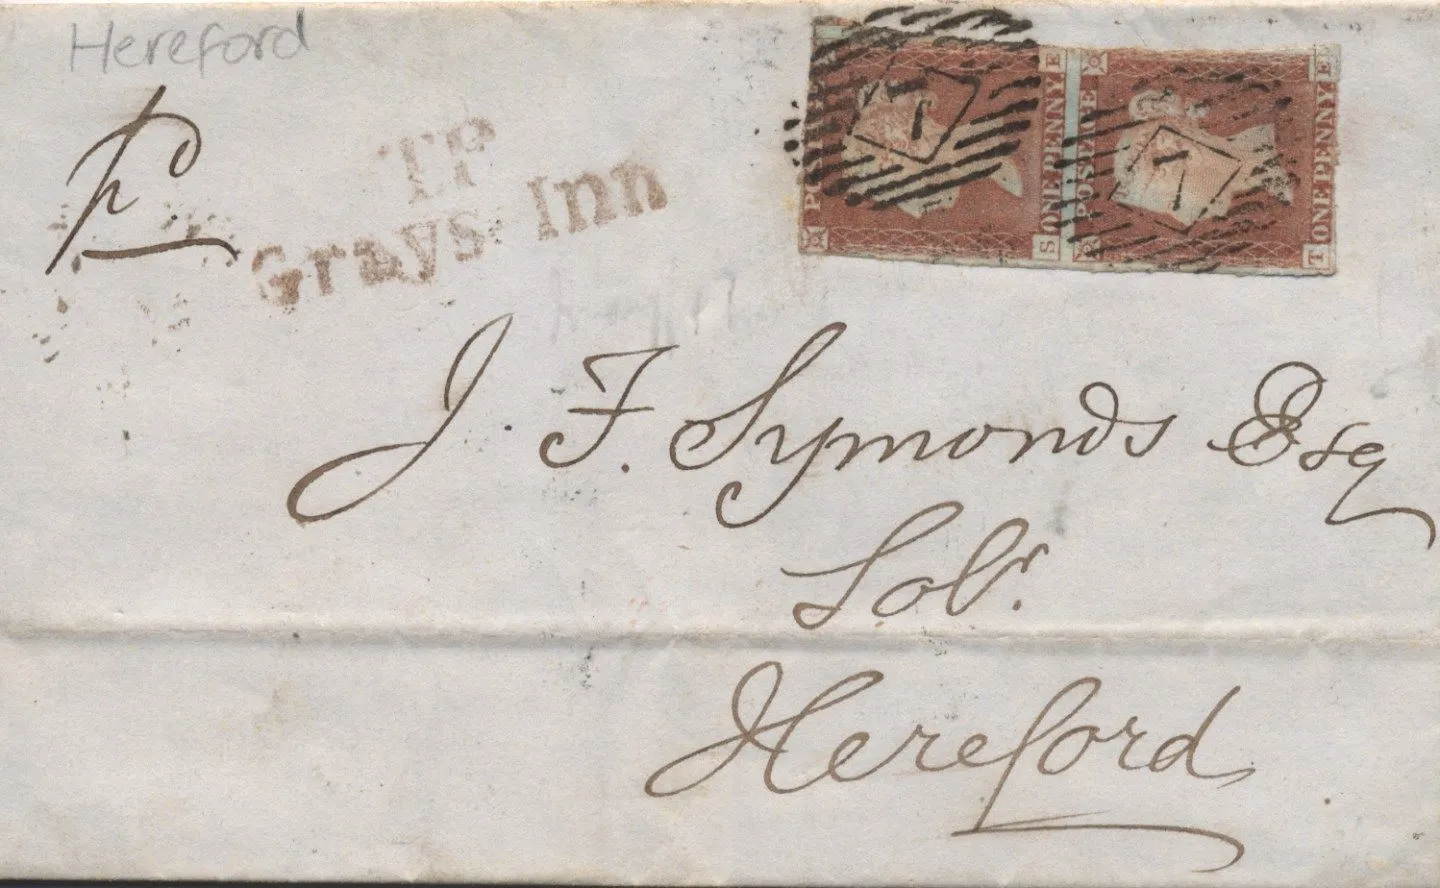 Hereford
pd
TP
Grays Inn
POSTAGE
ONE PENNY
S E
POSTAGE
ONE PENNY
T E
J. F. Symonds Esq
Solr.
Hereford